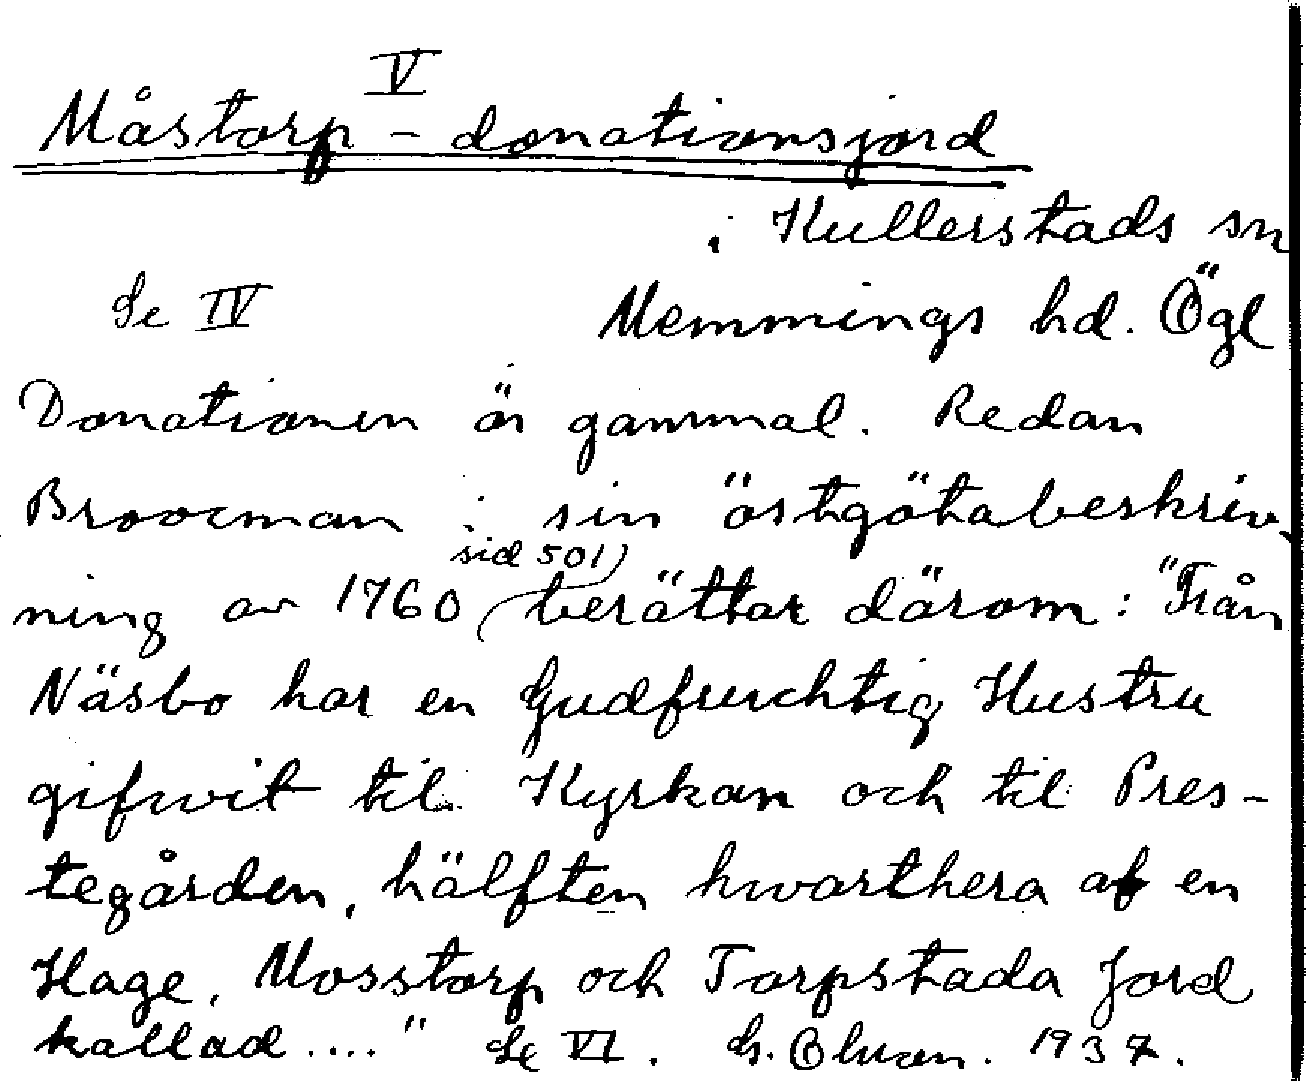 V
Måstorp - donationsjord
i Kullerstads sn
Se IV Memmings hd. Ögl
Donationen är gammal. Redan
Broocman i sin östgötabeskriv-
sid 501)
ning av 1760 (berättar därom: "Från
Näsbo har en Gudfruchtig Hustru
gifwit til Kyrkan och til Pres-
tegården, hälften hwarthera af en
Hage, Mosstorp och Torpstada Jord
kallad...." Se VI. G. 1937.